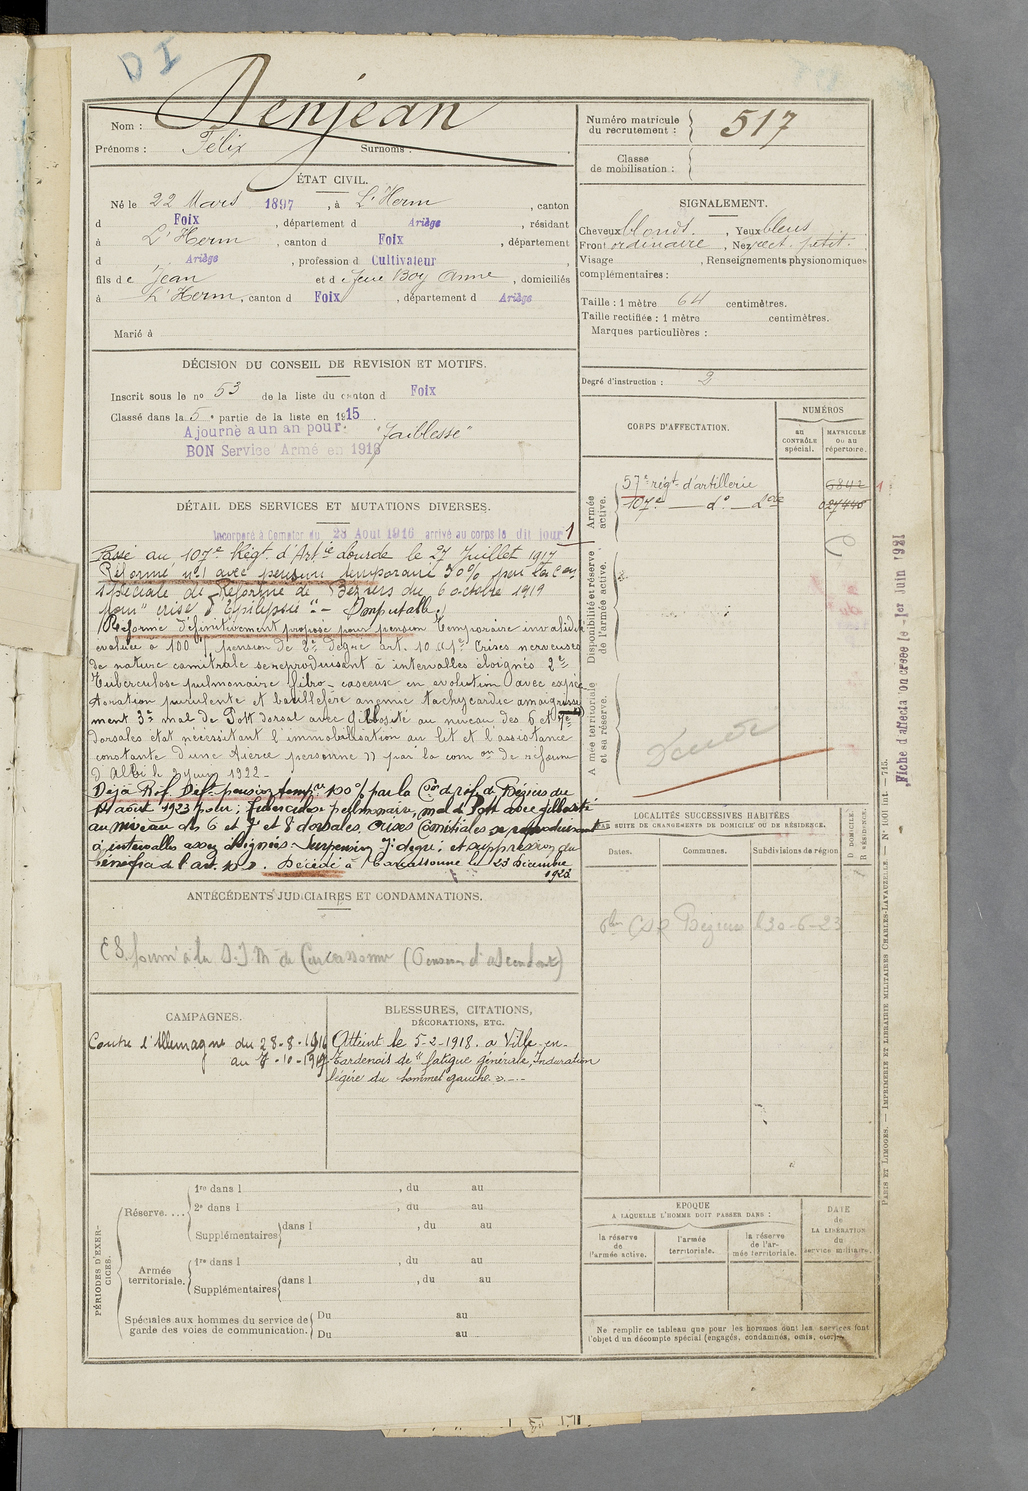 D I
Nom : Denjean
Prénoms : Félix Surnoms :
Numéro matricule
du recrutement : 517
Classe
de mobilisation :
ÉTAT CIVIL.
Né le 22 Mars 1897, à L'Herm, canton
d Foix, département d Ariège, résidant
à L'Herm, canton d Foix, département
d Ariège, profession d Cultivateur,
fils de Jean et de feue Boy Anne, domiciliés
à L'Herm, canton d Foix, département d Ariège
Marié à
SIGNALEMENT.
Cheveux blonds. , Yeux bleus
Front ordinaire , Nez rect. petit.
Visage , Renseignements physionomiques
complémentaires :
Taille : 1 mètre 64 centimètres.
Taille rectifiée : 1 mètre centimètres.
Marques particulières :
Degré d'instruction : 3
DÉCISION DU CONSEIL DE REVISION ET MOTIFS.
Inscrit sous le no 53 de la liste du canton d Foix
Classé dans la 5e partie de la liste en 1915
Ajourné a un an pour: "faiblesse"
BON Service Armé en 1916
DÉTAIL DES SERVICES ET MUTATIONS DIVERSES.
Incorporé à compter du 28 Aout 1916 arrivé au corps le dit jour 1
Passé au 107e Régt. d'Art.ie lourde le 27 Juillet 1917
Réformé n°1 avec pension temporaire 30% par la Con
Spéciale de Réforme de Béziers du 6 octobre 1919
pour "crise d'Epilepsie" - Imputable.
Réforme définitivement proposé pour pension temporaire invalidité
évaluée à 100% pension de 2e degré art. 10 Crises nerveuses
de nature comitiale se reproduisant à intervalles éloignés 2e
Tuberculose pulmonaire fibro-caseuse en evolution avec expec
toration purulente et bacillifère anémie tachycardie amaigrisse
ment 3e mal de Pott dorsal avec gibbosité au niveau des 6 et 7e
dorsales état nécessitant l'immobilisation au lit et l'assistance
constante d'une tierce personne )) par la com on de réforme
d'Albi le 2 juin 1922-
Déjà Réf. Déf. pension tempre 100% par la Con de réf. de Béziers du
août 1923 pour : Tuberculose pulmonaire, mal de Pott avec gibbosité
au niveau des 6 et 7 et 8 dorsales. Crises Comitiales se reproduisant
à intervalles assez éloignés - degré; et suppression du
bénéfice de l'art. 10. Décédé à Carcassonne le 23 décembre
1923
CORPS D'AFFECTATION.
NUMÉROS
au
CONTRÔLE
spécial.
MATRICULE
ou au
répertoire.
Armée
active.
57e régt. d'artillerie 6842
107e — d° — Lourde
Disponibilité et réserve
de l'armée active.
Armée territoriale
et sa réserve.
Fiche d'affectation créée le -1er Juin 1921
LOCALITÉS SUCCESSIVES HABITÉES
PAR SUITE DE CHANGEMENTS DE DOMICILE OU DE RÉSIDENCE.
Dates.
Communes.
Subdivisions de région
D DOMICILE.
R RÉSIDENCE.
CSR Béziers 30-6-23
ANTÉCÉDENTS JUDICIAIRES ET CONDAMNATIONS.
ES fourni à la S.I.M de Carcassonne (Pension d'ascendant)
CAMPAGNES.
Contre l'Allemagne du 28-8-1916
au 7-10-1919
BLESSURES, CITATIONS,
DÉCORATIONS, ETC.
Atteint le 5-2-1918. a Ville-en-
Tardenois de "fatigue générale, Induration
légère du sommet gauche".
PÉRIODES D'EXER-
CICES.
Réserve....
1re dans l , du au
2e dans l , du au
Supplémentaires dans l , du au
Armée
territoriale.
1re dans l , du au
Supplémentaires dans l , du au
Spéciales aux hommes du service de
garde des voies de communication.
Du au
Du au
EPOQUE
A LAQUELLE L'HOMME DOIT PASSER DANS :
la réserve
de
l'armée active.
l'armée
territoriale.
la réserve
de l'ar-
mée territoriale.
DATE
de
LA LIBÉRATION
du
service militaire.
Ne remplir ce tableau que pour les hommes dont les services font
l'objet d'un décompte spécial (engagés, condamnés, omis, etc.).
PARIS ET LIMOGES. — IMPRIMERIE ET LIBRAIRIE MILITAIRES CHARLES-LAVAUZELLE — N° 1001 int. — 715.